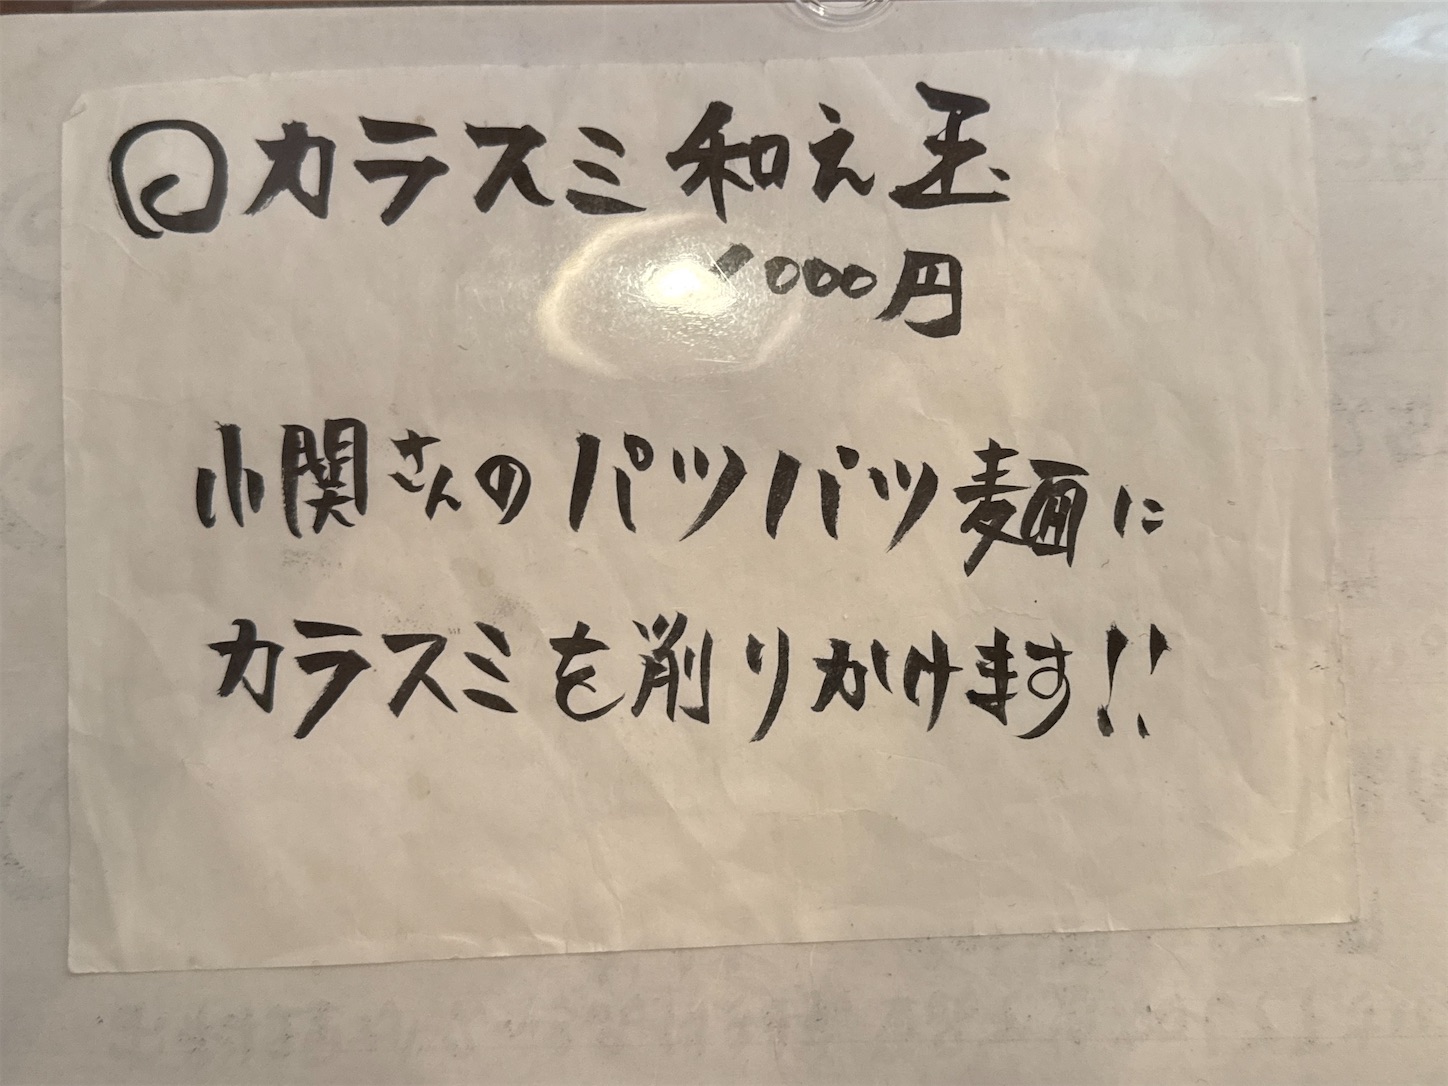 ◎カラスミ和え玉
1000円
小関さんのパツパツ麺に
カラスミを削りかけます!!